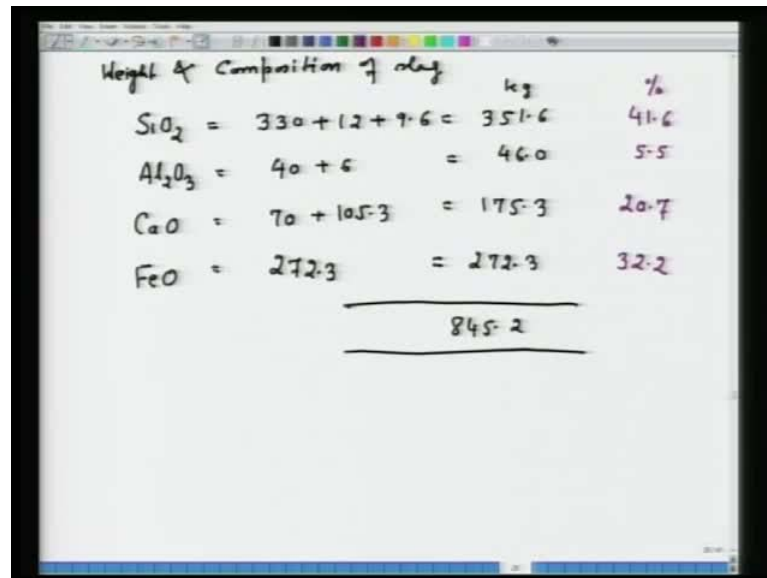 Weight & Composition of slag
kg %
SiO2 = 330 + 12 + 9.6 = 351.6 41.6
Al2O3 = 40 + 6 = 46.0 5.5
CaO = 70 + 105.3 = 175.3 20.7
FeO = 272.3 = 272.3 32.2
845.2